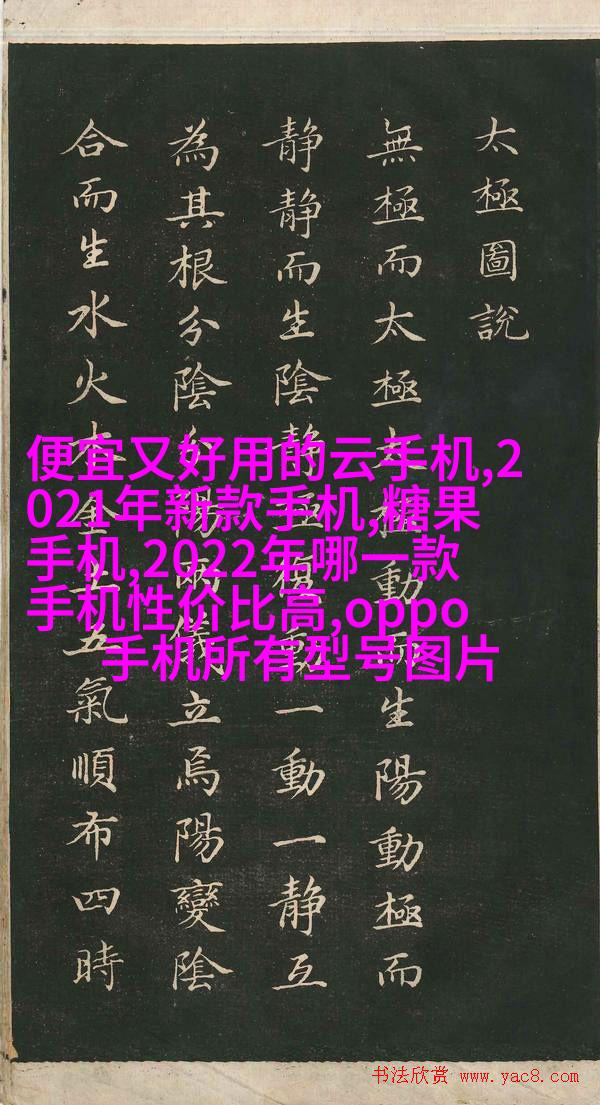 太極圖說
無極而太極太極動而生陽動極而
静静而生陰静極復動一動一静互
為其根分陰分陽兩儀立焉陽變陰
合而生水火木金土五氣順布四時
便宜又好用的云手机,2
021年新款手机,糖果
手机,2022年哪一款
手机性价比高,oppo
手机所有型号图片
书法欣赏 www.yac8.com